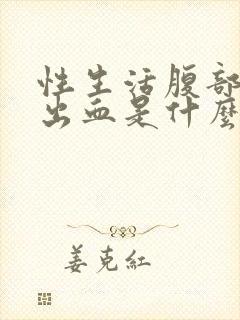 性生活腹部
出血是什麽
姜克红